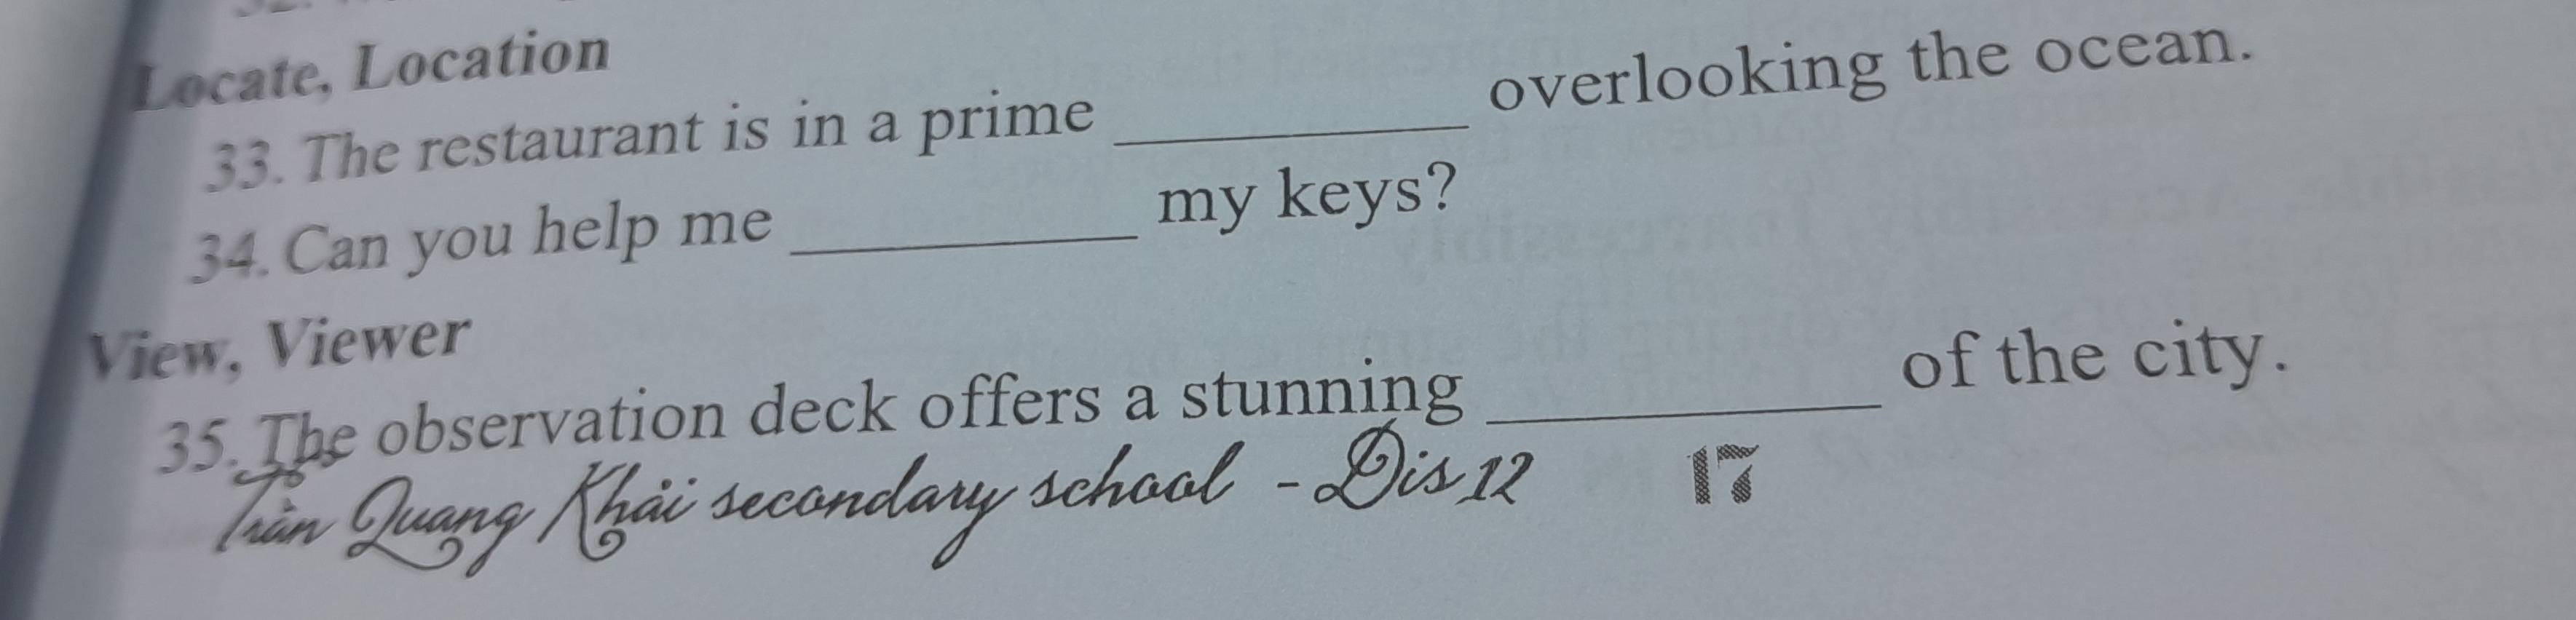 Locate, Location
33. The restaurant is in a prime __________ overlooking the ocean.
34. Can you help me __________ my keys?
View, Viewer
35. The observation deck offers a stunning __________ of the city.
Trần Quang Khải secondary school - Dis 12 17